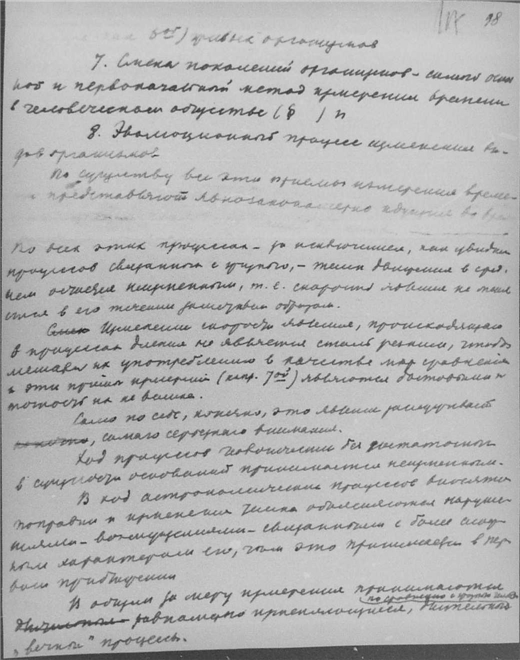 98
организмов
7. Смена поколений организмов – самый
и первоначальный метод измерения времени
в человеческом обществе (§ ) и
8. Эволюционный процесс изменения ви-
дов организмов.
По существу все эти приемы измерения време-
представляют явно закономерно идущие во вре-
Во всех этих процессах – за исключением, как увидим
процессов связанных с – темп движения в сред-
нем остается неизменным, т.е. скорость явления не меня
ется в его течении заметным образом.
Изменение скорости явления, происходящего
в процессах не является столь резким, чтобы
мешать их употреблению в качестве мер сравнения
и эти приемы измерений (напр. 7ой) являются бытовыми и
точность их не велика.
Само по себе, конечно, это явление заслуживает
самого серьезного внимания.
Ход процессов человеческих без достаточных
в сущности оснований принимается неизменным.
В ход астрономических процессов вносятся
поправки и изменения темпа объясняются наруше-
ниями – возмущениями – связанными с более слож-
ным характером его, чем это принимается в пер-
вом приближении
В общем за меру измерения принимаются
равномерно длительные
"вечные" процессы.